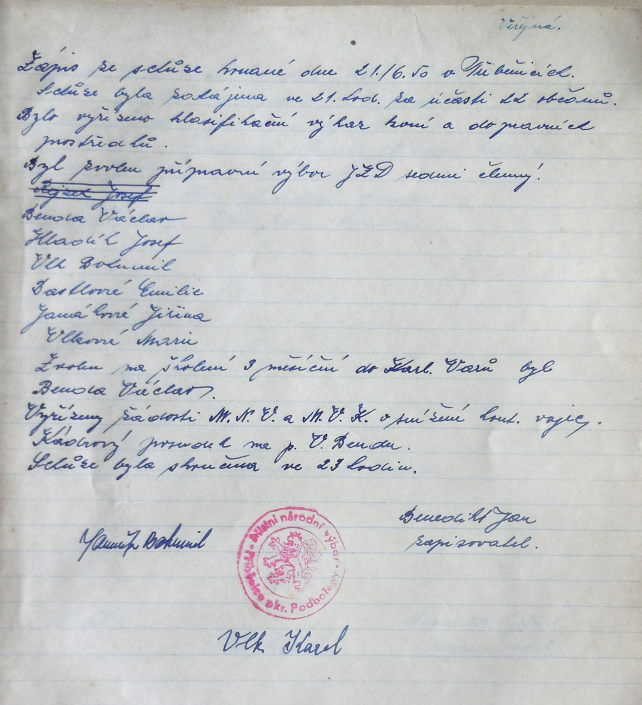 Veřejná.
Zápis ze schůze konané dne 21./6. 50 v
Schůze byla zahájena ve 21. hod. za účasti 22 občanů.
Bylo vyřízeno klasifikační výkaz koní a dopravních
prostředků.
Byl zvolen přípravní výbor JZD sedmi členný!
Josef
Benda Václav
Hladík Josef
Vlk Bohumil
Bartlová Emilie
Janáková Jiřina
Vlková Marie
Zvolen na školení 3 měsíční do Karl. Varů byl
Benda Václav.
Vyřízeny žádosti M.N.V. a M.V.K. o snížení kont. vajec.
Kádrový posudek na p. V. Bendu.
Schůze byla skončena ve 23 hodin.
Benedikt Jan
zapisovatel.
Bohumil
Místní národní výbor
okr. Podbořany
Vlk Karel